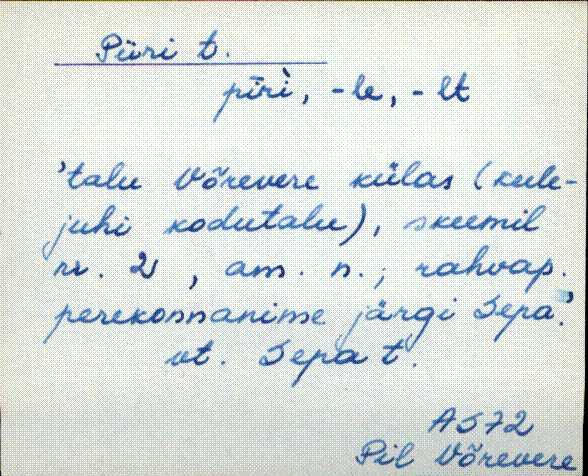 Piiri t.
pīrì, -le, -lt
'talu Võrevere külas (keele-
juhi kodutalu), skeemil
nr. 2, am. n.; rahvap.
perekonnanime järgi Sepa'.
vt. Sepa t.
AS72
Pil Võrevere